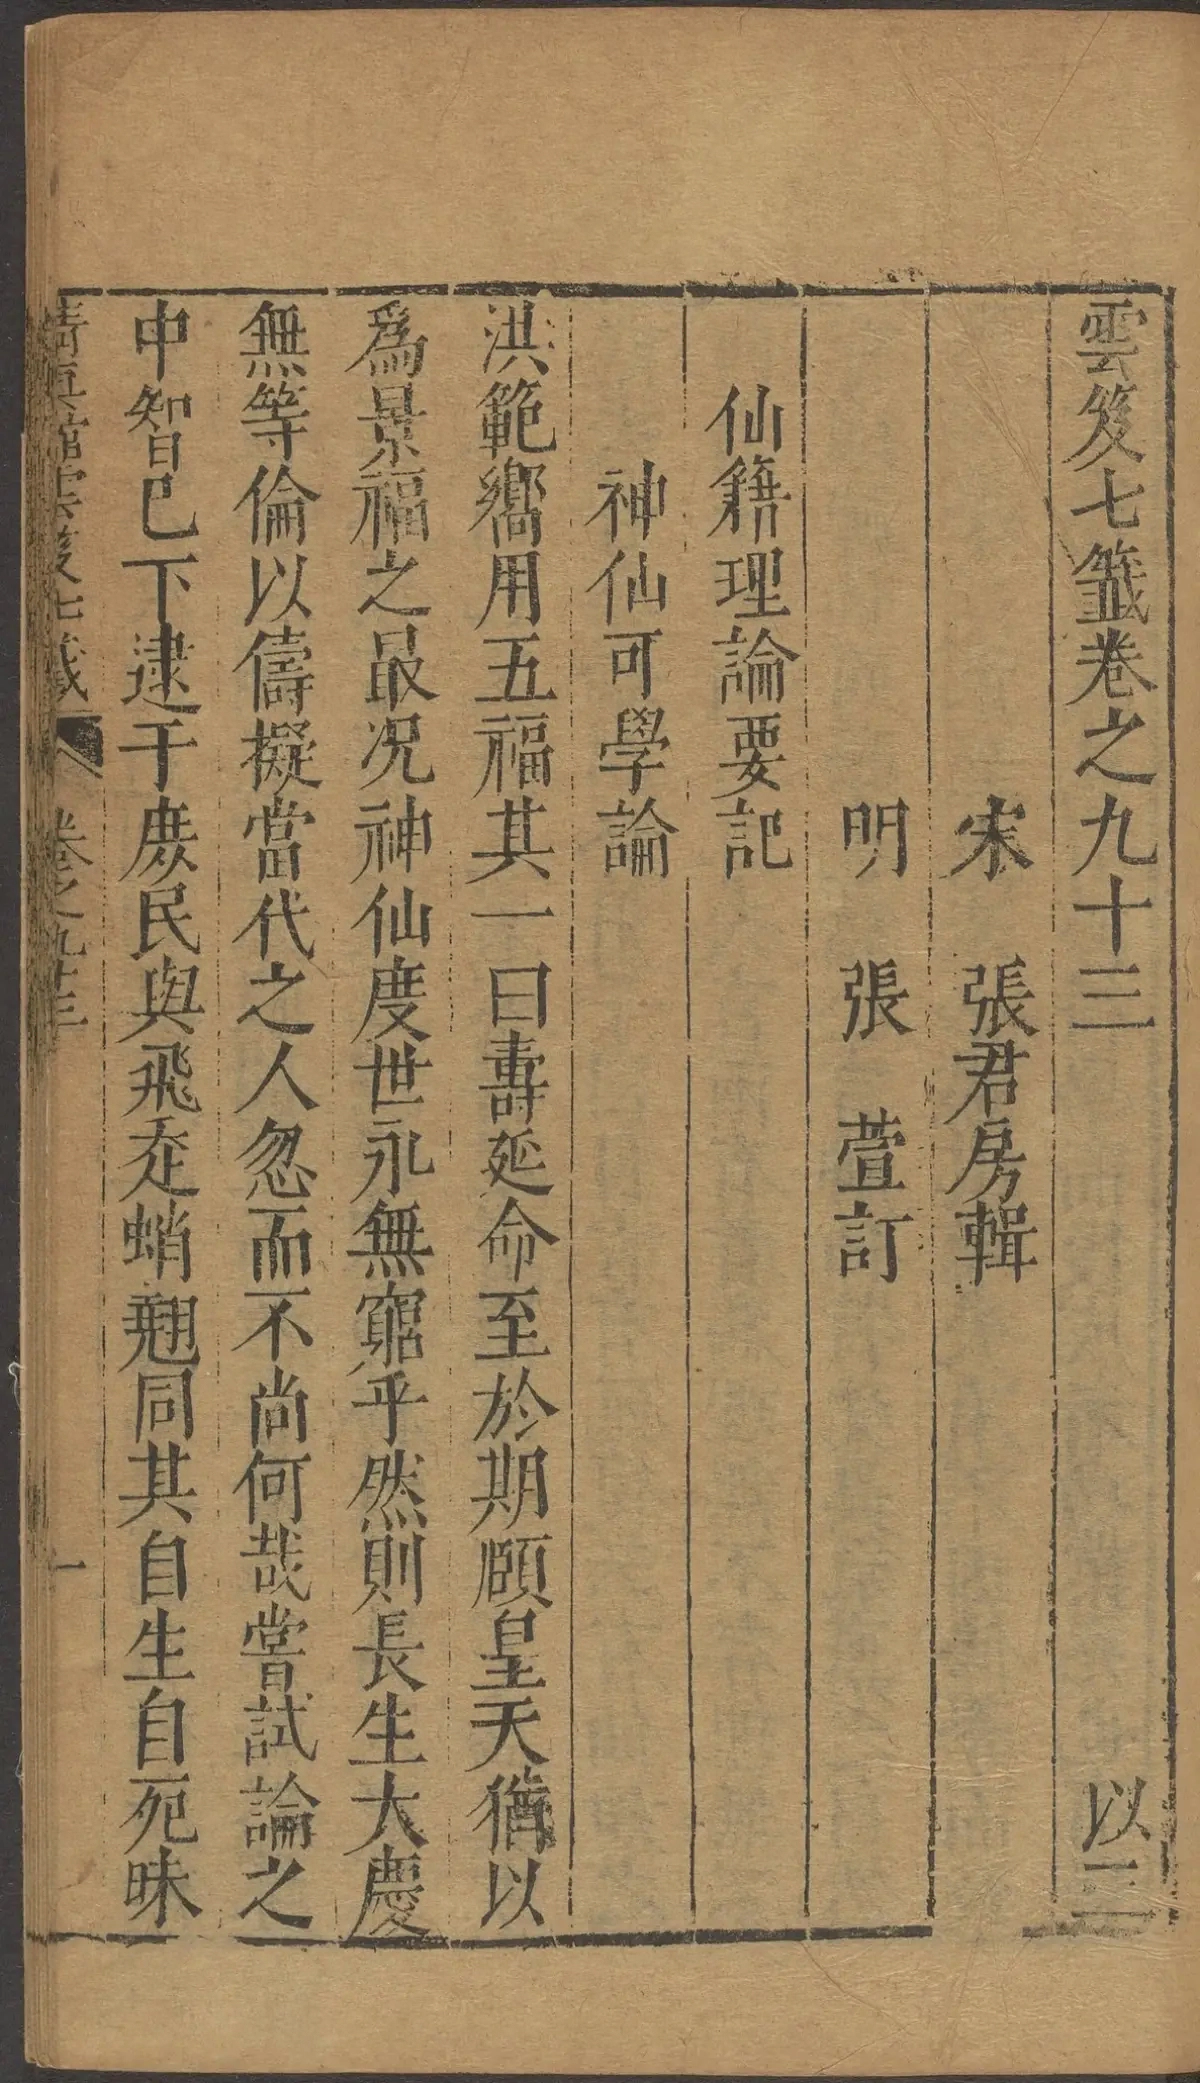 雲笈七籤卷之九十三 以三
宋 張君房輯
明 張 萱訂
仙籍理論要記
神仙可學論
洪範嚮用五福其一曰壽延命至於期頤皇天猶以
爲景福之最况神仙度世永無窮乎然則長生大慶
無等倫以儔擬當代之人忽而不尚何哉嘗試論之
中智已下逮于庻民與飛走蛸翹同其自生自死昧
清真館雲笈七籤 卷之九十三 一